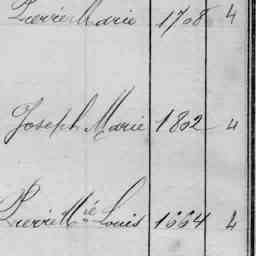 Pierre Marie 1708 4
Joseph Marie 1802 4
Pierre Mie Louis 1664 4